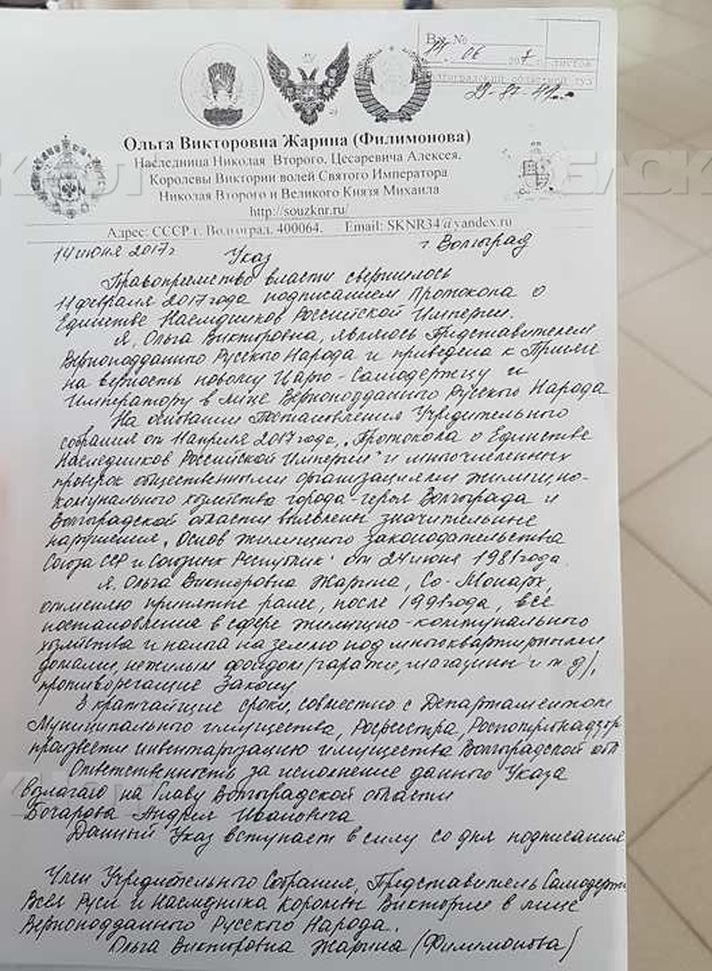 Вх. №
14. 06
Волгоградский областной суд
Ольга Викторовна Жарина (Филимонова)
Наследница Николая Второго, Цесаревича Алексея,
Королевы Виктории волей Святого Императора
Николая Второго и Великого Князя Михаила
http://souzknr.ru/
Адрес: СССР г. Волгоград, 400064, Email: SKNR34@yandex.ru
БЛОКНОТ БЛОК
14 июня 2017г Указ г. Волгоград
Правопреемство власти свершилось
11 февраля 2017 года подписанием Протокола о
Единстве Наследников Российской Империи.
Я, Ольга Викторовна, являюсь Представителем
Верноподданного Русского Народа и приведена к Присяге
на верность новому Царю-Самодержцу и
Императору в лице Верноподданного Русского Народа
На основании Постановления Учредительного
собрания от 11 апреля 2017 года, "Протокола о Единстве
Наследников Российской Империи" и многочисленных
проверок общественными организациями жилищно-
комунального хозяйства города-героя Волгограда и
Волгоградской области выявлены значительные
нарушения "Основ жилищного законодательства
Союза ССР и Союзных Республик" от 24 июня 1981 года.
Я, Ольга Викторовна Жарина, Со-Монарх,
отменяю принятые ранее, после 1991 года, все
постановления в сфере жилищно-коммунального
хозяйства и налога на землю под многоквартирными
домами, нежилым фондом (гаражи, магазины и т д),
противоречащие Закону
В кратчайшие сроки, совместно с Департаментом
Муниципального имущества, Росреестра, Роспотребнадзор
произвести инвентаризацию имущества Волгоградской обл
Ответственность за исполнение данного Указа
возлагаю на Главу Волгоградской области
Бочарова Андрея Ивановича
Данный Указ вступает в силу со дня подписания
Член Учредительного Собрания, Представитель Самодерж
Всея Руси и Наследника Королевы Виктории в лице
Верноподданного Русского Народа.
Ольга Викторовна Жарина (Филимонова)